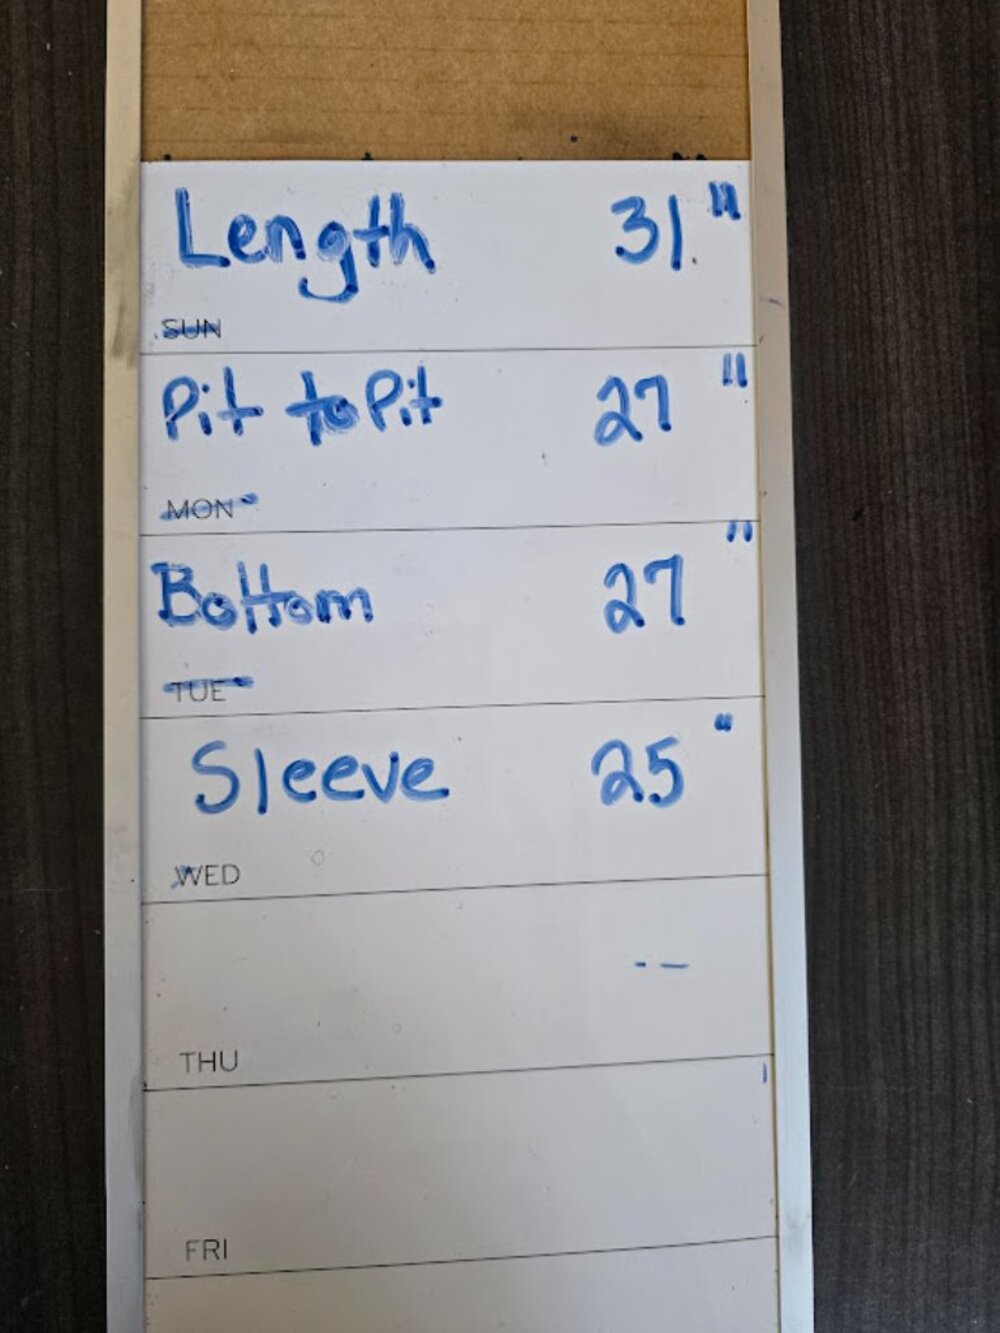 Length 31"
SUN
Pit to Pit 27"
MON
Bottom 27"
TUE
Sleeve 25"
WED
THU
FRI